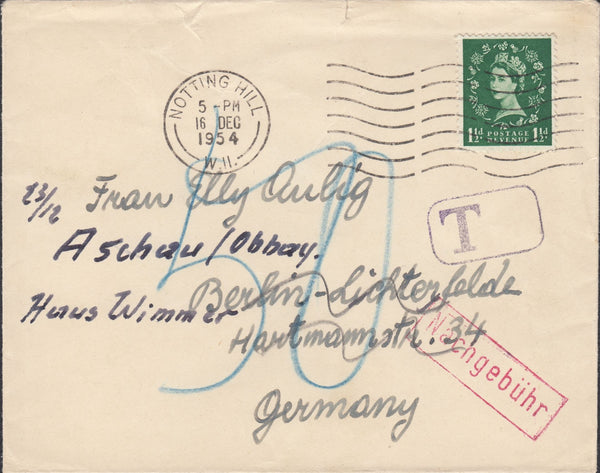 NOTTING HILL
5 - PM
16 DEC
1954
W.11.
1½d POSTAGE REVENUE 1½d
T
23/12 Frau Elly Aulig
Aschau/Obbay.
Haus Wimmer
50
Berlin-Lichterfelde
Hartmannstr. 34
Germany
Nachgebühr